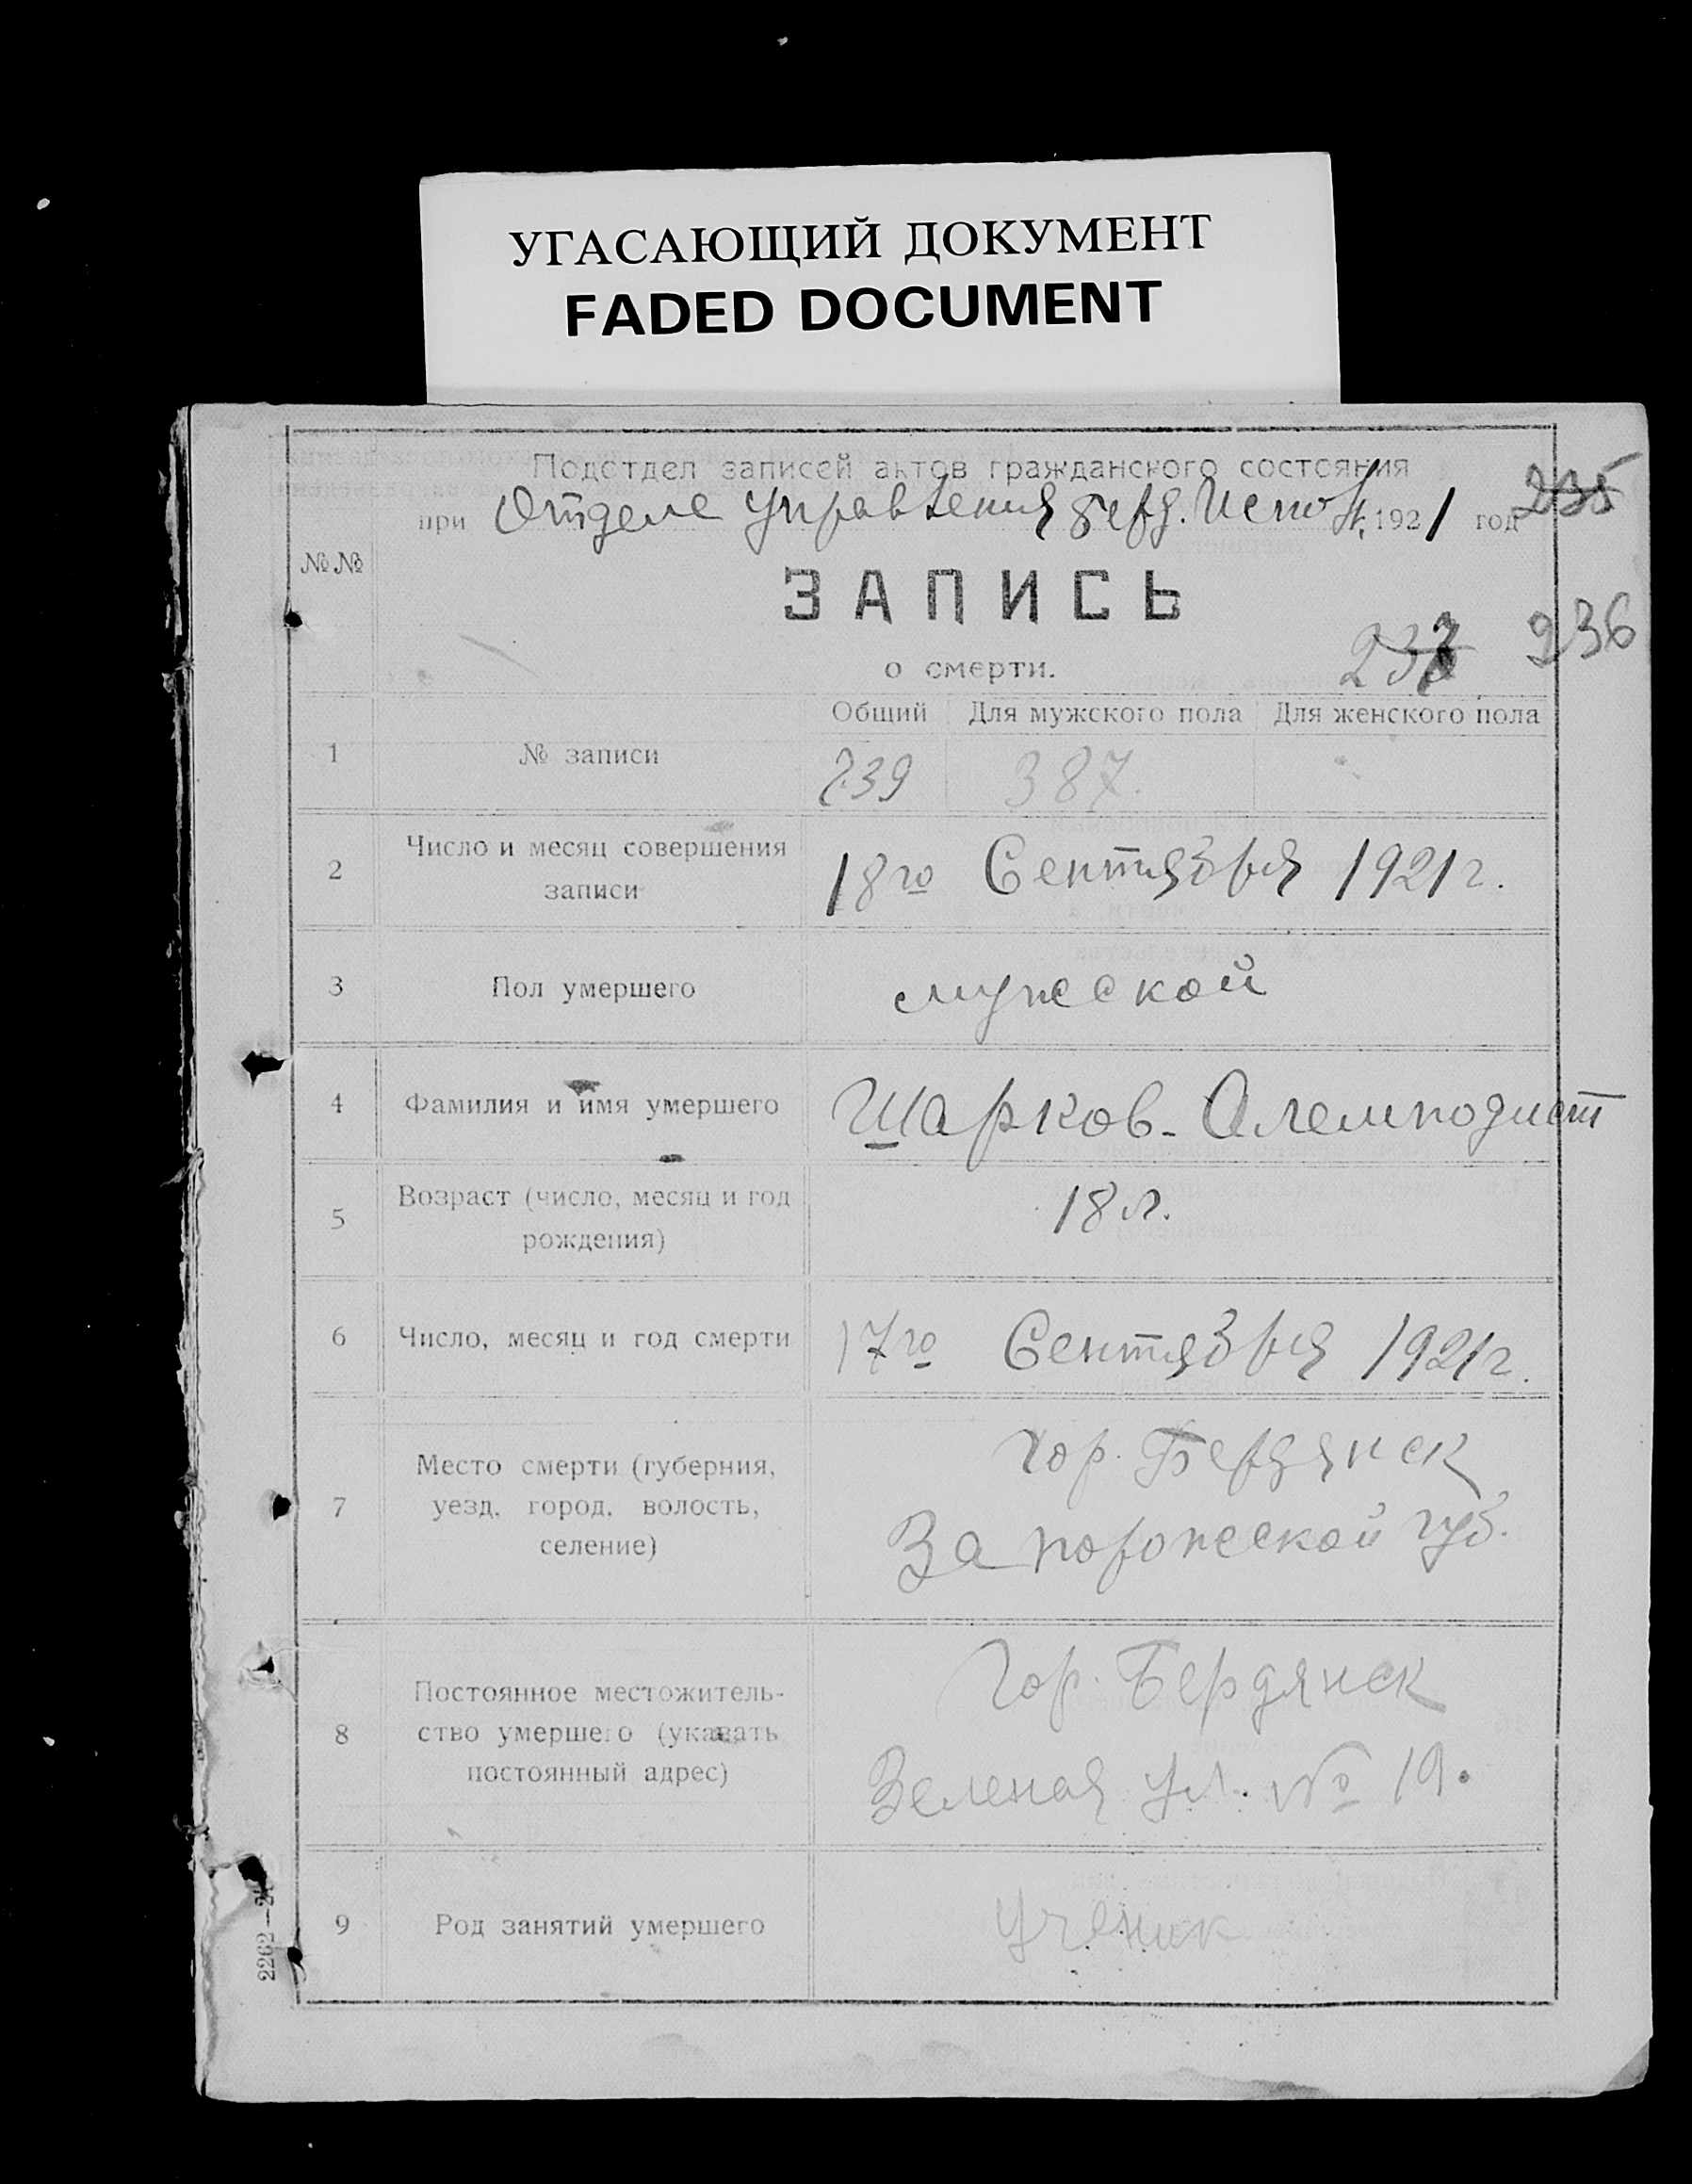 УГАСАЮЩИЙ ДОКУМЕНТ
FADED DOCUMENT
Подотдел записей актов гражданского состояния
при Отделе Управления Берд. Испол. 1921 год 235
№№
ЗАПИСЬ
о смерти.
236
Общий Для мужского пола Для женского пола
1 № записи 739 387.
2 Число и месяц совершения
записи
18го Сентября 1921г.
3 Пол умершего мужской
4 Фамилия и имя умершего Шарков - Алемподист
5 Возраст (число, месяц и год
рождения)
18 л.
6 Число, месяц и год смерти 17го Сентября 1921г.
7 Место смерти (губерния,
уезд, город, волость,
селение)
Гор. Бердянск
Запорожской губ.
8 Постоянное местожитель-
ство умершего (указать
постоянный адрес)
Гор. Бердянск
Зеленая ул. № 19.
9 Род занятий умершего ученик